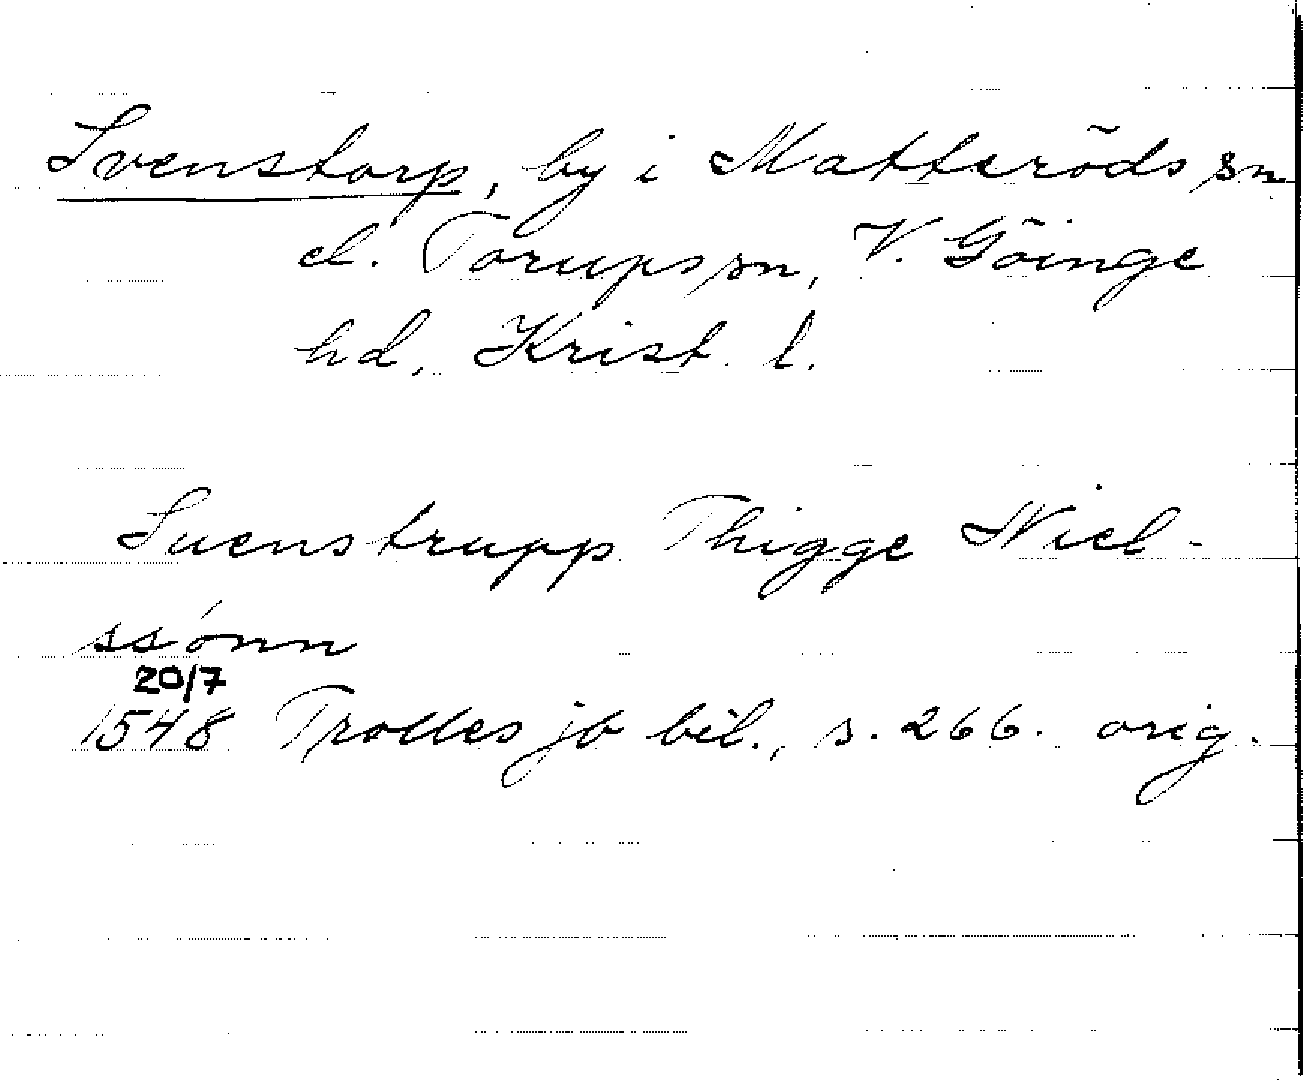 Svenstorp, by i Matteröds sn
el. Torups sn, V. Göinge
hd, Krist. l.
Suenstrupp Thigge Niel-
ssónn
20/7
1548 Trolles jb bil., s. 266. orig.